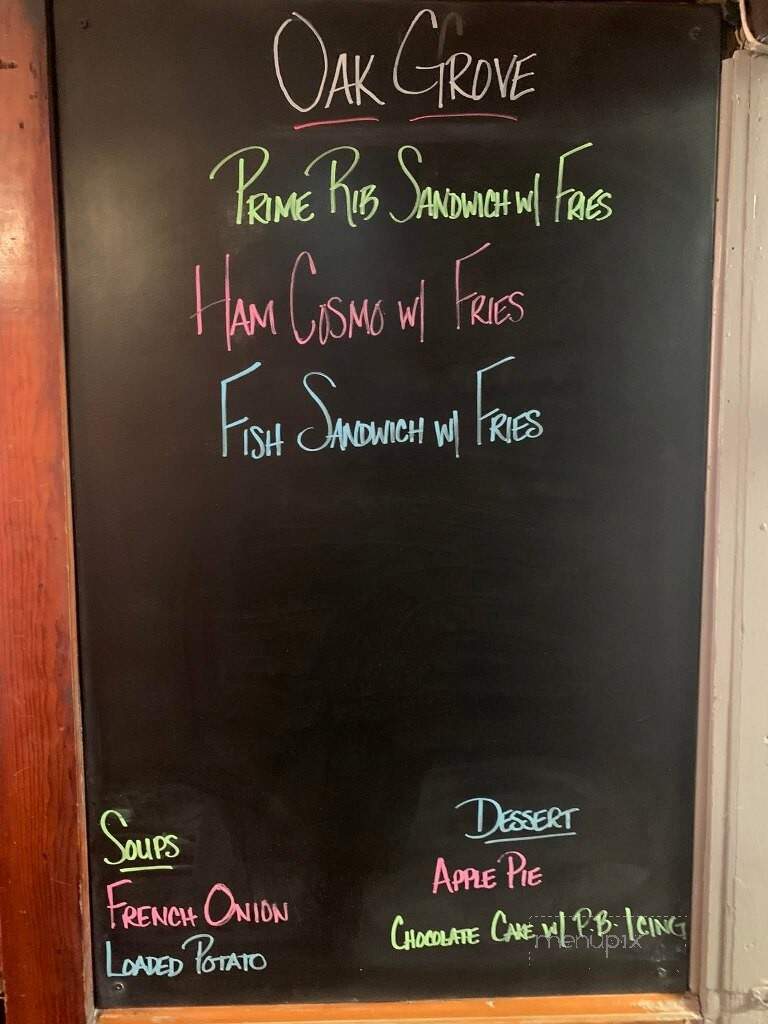 Oak Grove
Prime Rib Sandwich w/ Fries
Ham Cosmo w/ Fries
Fish Sandwich w/ Fries
Soups
French Onion
Loaded Potato
Dessert
Apple Pie
Chocolate Cake w/ P.B. Icing
menupix